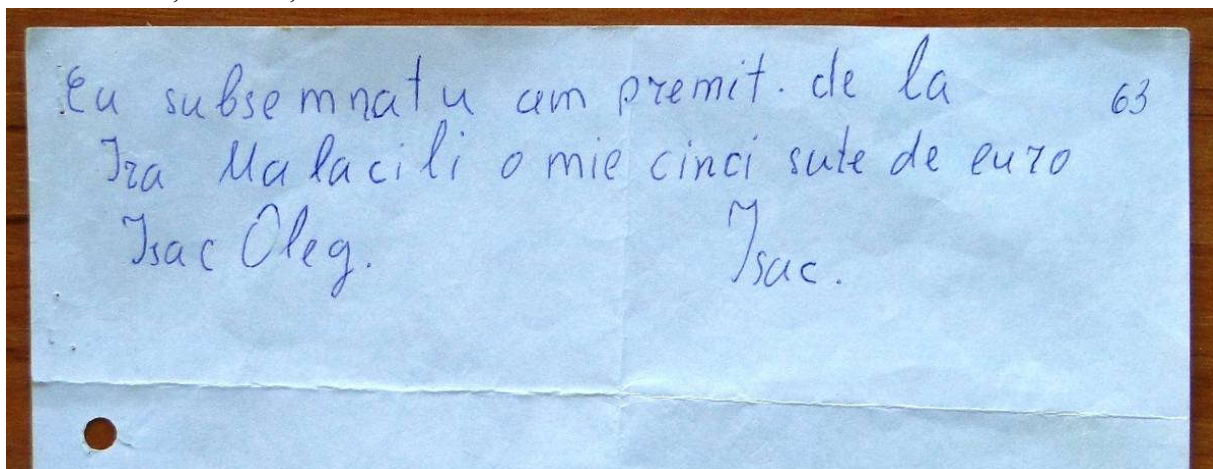 Eu subsemnatu am premit. de la 63
Ira Malacili o mie cinci sute de euro
Isac Oleg. Isac.